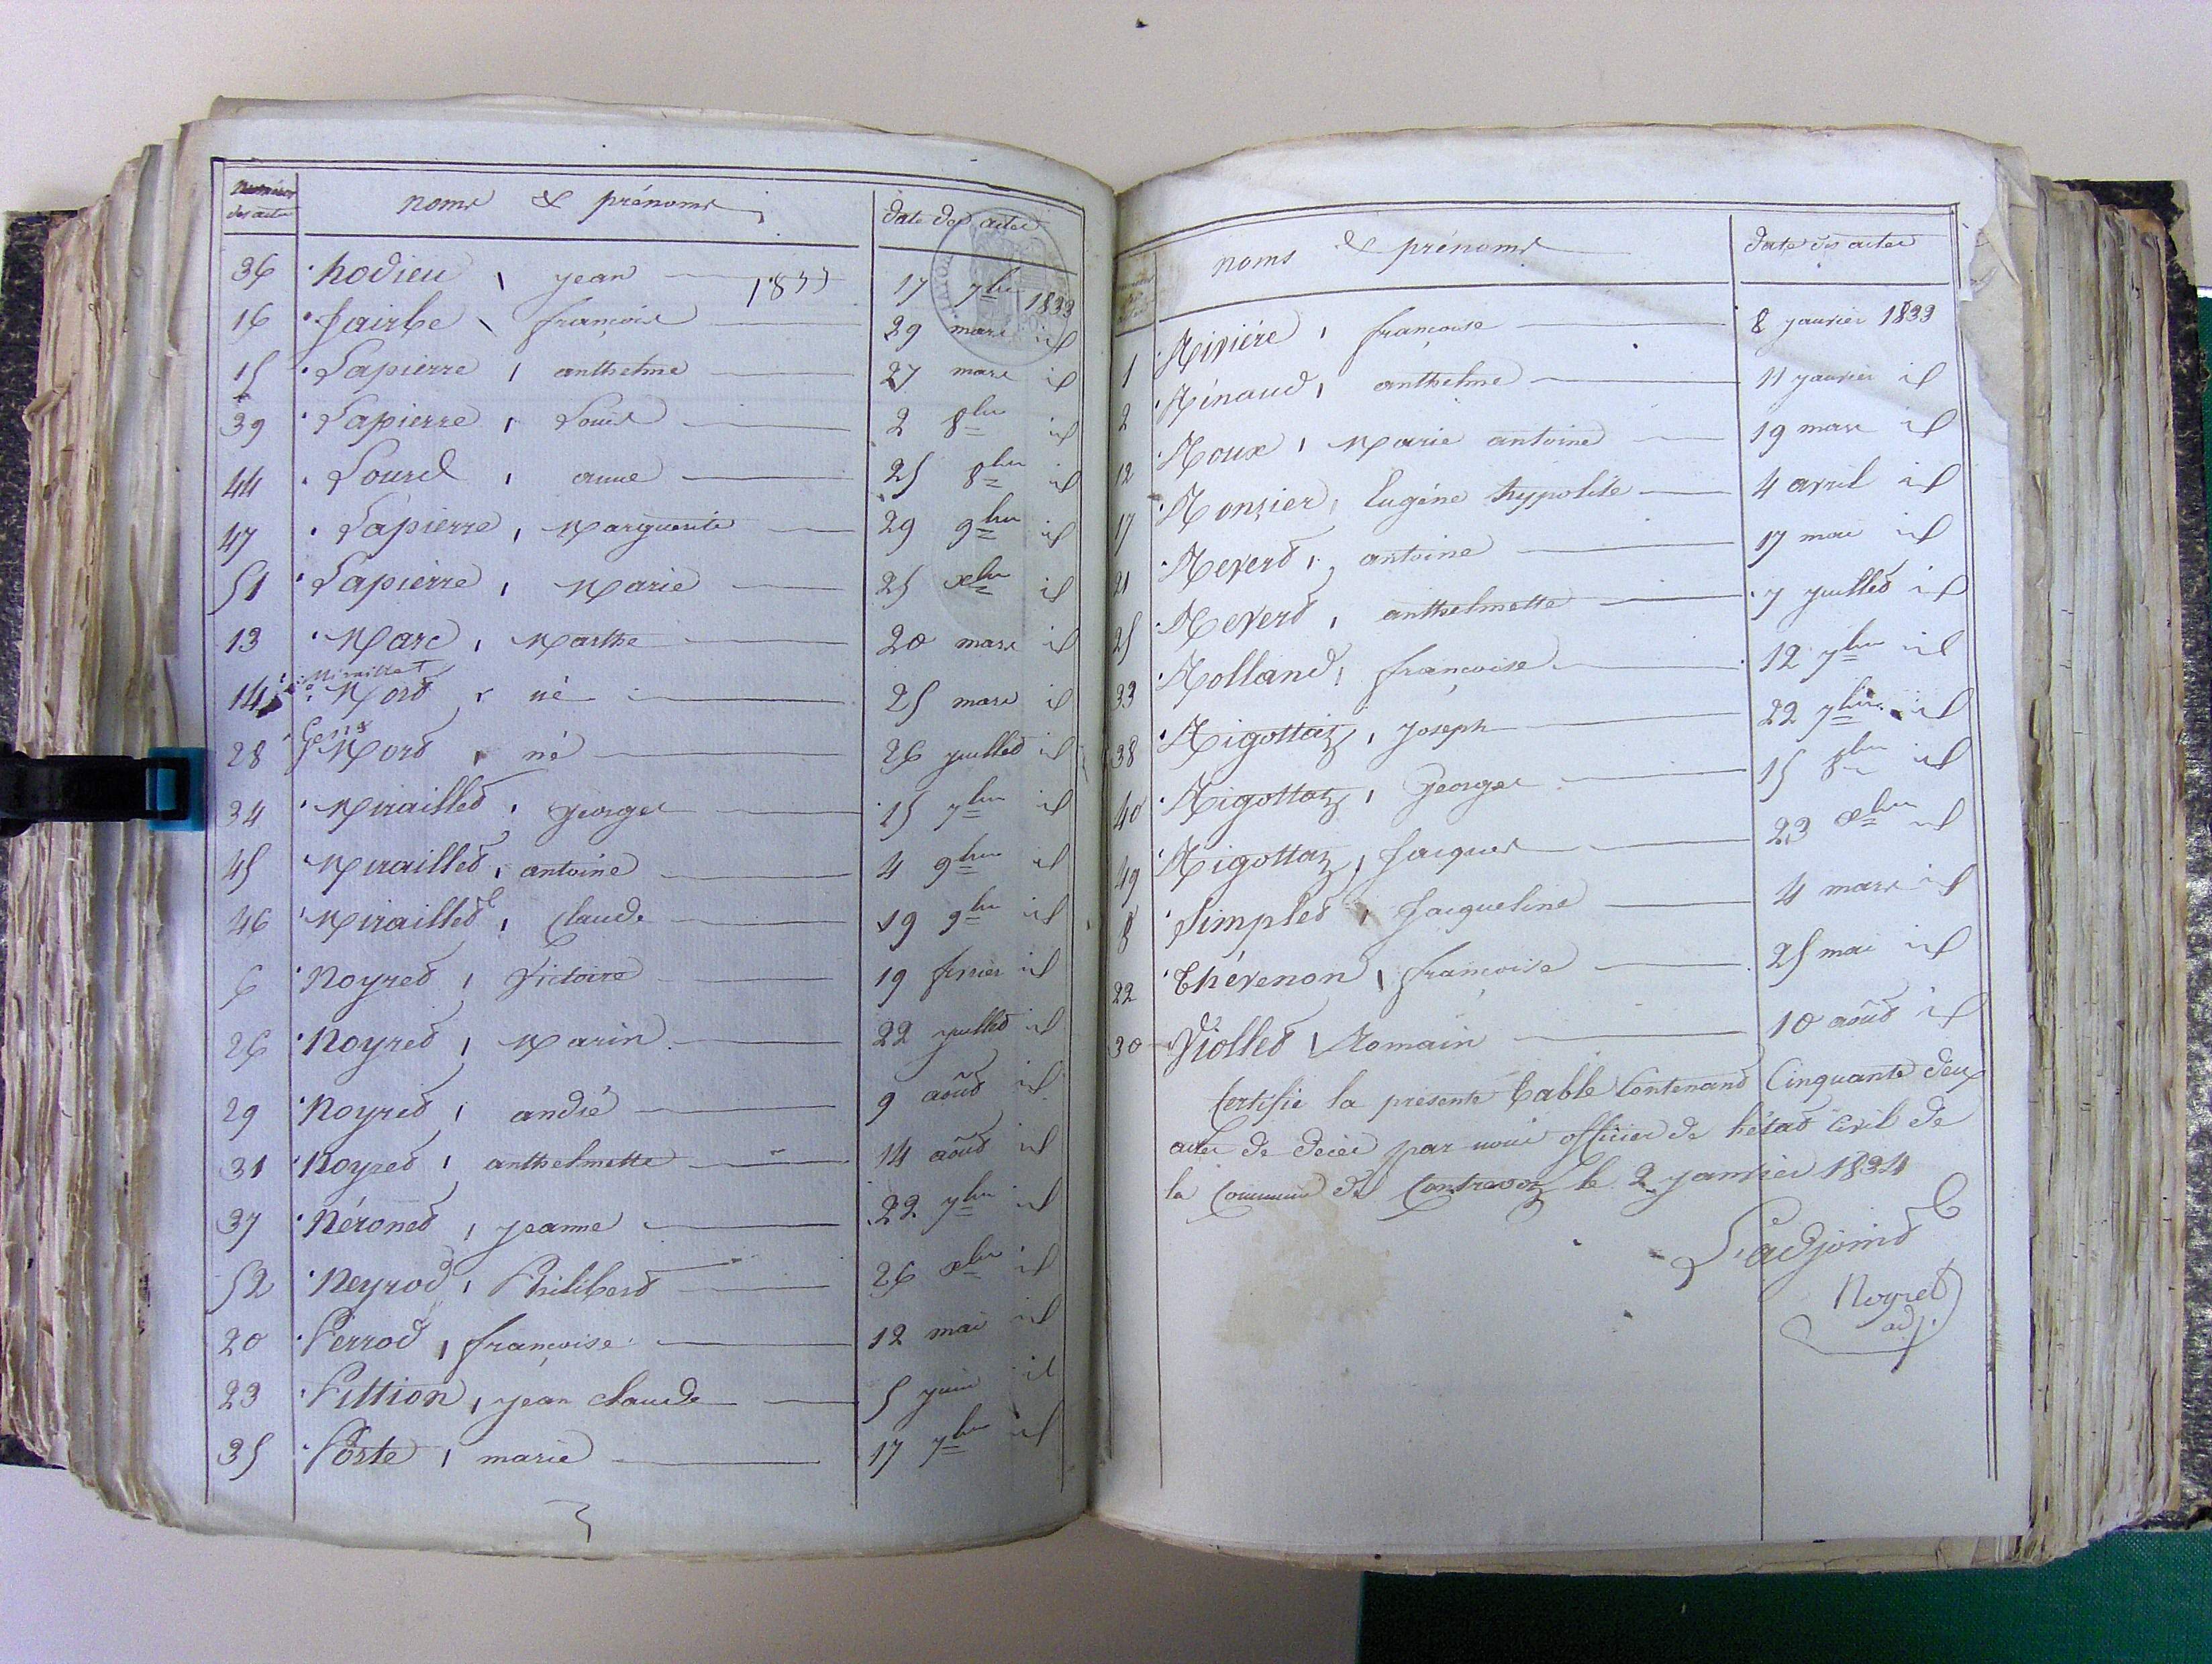 Numéros des actes | noms & prénoms | date des actes
36 hodieu, jean 1833 17 7bre 1833
16 Jairbe, françois 29 mars id
15 Lapierre, anthelme 27 mars id
39 Lapierre, Louis 2 8bre id
44 Lourd, anne 25 8bre id
47 Lapierre, Marguerite 29 9bre id
51 Lapierre, Marie 25 xbre id
13 Marc, Marthe 20 mars id
Miraillet
14 Mort, né 25 mars id
Gens
28 Mort, né 26 juillet id
34 Miraillet, georges 15 7bre id
45 Miraillet, antoine 4 9bre id
46 Miraillet, Claude 19 9bre id
6 Noyret, Victoire 19 fevrier id
26 Noyret, Marin 22 juillet id
29 Noyret, andré 9 août id
31 Noyret, anthelmette 14 août id
37 Néronet, jeanne 22 7bre id
52 Neyrod, Philibert 26 xbre id
20 Perrod, françoise 12 mai id
23 Pittion, jean claude 5 juin id
35 Porte, marie 17 7bre id
noms & prénoms | date des actes
1 Rivière, françoise 8 janvier 1833
2 Rénaud, anthelme 11 janvier id
12 Roux, Marie antoine 19 mars id
17 Ronzier, Eugéne hypolite 4 avril id
21 Revert, antoine 17 mai id
25 Revert, anthelmette 7 juillet id
33 Rolland, françoise 12 7bre id
38 Rigottaz, Joseph 22 7bre id
40 Rigottaz, georges 15 8bre id
49 Rigottaz, Jacques 23 xbre id
8 Simplet, Jacqueline 4 mars id
22 Thévenon, françoise 25 mai id
30 Viollet, Romain 10 août id
Certifié la présente Table Contenant Cinquante deux
actes de décès par nous officier de l'état civil de
la Commune de Contrevoz le 2 janvier 1834
L'adjoint
Noyret
adj.